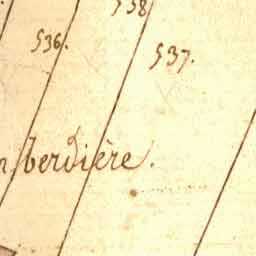 538
536.
537.
berdière.